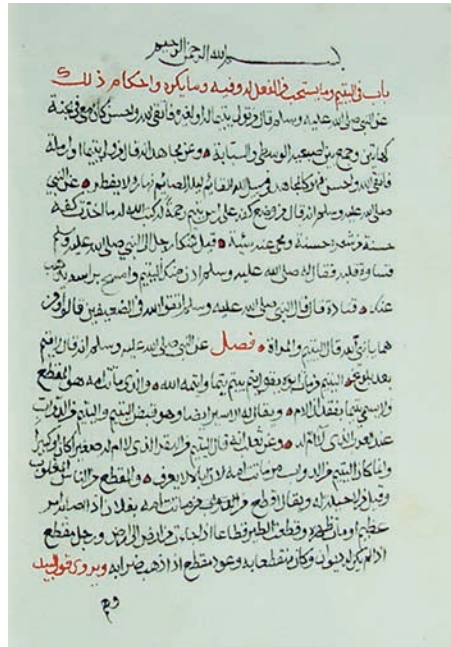 بسم الله الرحمن الرحيم
باب في اليتيم وما يستحب في الفعل له وفيه وما يكره واحكام ذلك
عن النبي صلى الله عليه وسلم قال من تولى يتيما له او لغيره فاتقى الله واحسن كان معي في الجنة
كهاتين وجمع بين اصبعيه الوسطى والسبابة وعن مجاهد انه قال من ولي يتيما او ارملة
فاتقى الله واحسن في سبيل الله القائم ليله الصائم نهاره ولا يفطر عن النبي
صلى الله عليه وسلم انه قال من وضع كفه على راس يتيم رحمة له كتب الله له ما اخذت كفه
حسنة ومحي عنه سيئة قيل شكا رجل الى النبي صلى الله عليه وسلم
قساوة قلبه فقال له صلى الله عليه وسلم ادن منك اليتيم وامسح براسه يذهب
عنك قتادة قال قال النبي صلى الله عليه وسلم اتقوا الله في الضعيفين قالوا ومن
هما يا نبي الله قال اليتيم والمراة فصل عن النبي صلى الله عليه وسلم انه قال لا يتم
بعد بلوغ اليتيم من مات ابوه يقول يتم ييتم يتما وايتمه الله والذي ماتت امه هو المقطع
ولا يسمى يتيما بفقد الام ويقال له الاسير ايضا وهو قبض اليتيم واليتيم من الدواب
عند العرب الذي لا ام له وعن ثعلب انه قال اليتيم
وانما كان اليتيم من الدواب من ماتت امه لان اباه لا يعرف والمقطع من الناس المغلوب
وقيل من لا حيلة له ويقال اقطع
عظيم وقطعت الطير قطاعا اذا جاءت من ارض الى ارض ورجل مقطع
اذا لم يكن له ديوان وكان منقطعا به وعود مقطع اذا ذهب ضرابه ويروى قول لبيد